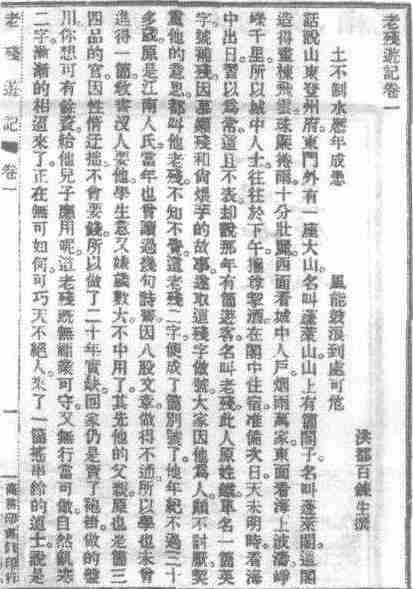 老殘遊記卷一
土不制水歷年成患　風能鼓浪到處可危
洪都百鍊生撰
話說山東登州府東門外有一座大山名叫蓬萊山山上有箇閣子名叫蓬萊閣這閣
造得畫棟飛雲珠簾捲雨十分壯麗西面看城中人戶烟雨萬家東面看海上波濤崢
嶸千里所以城中人士往往於下午攜尊挈酒在閣中住宿準備次日天未明時看海
中出日習以爲常這且不表却說那年有箇遊客名叫老殘此人原姓鐵單名一箇英
字號補殘因慕懶殘和尚煨芋的故事遂取這殘字做號大家因他爲人頗不討厭契
重他的意思都叫他老殘不知不覺這老殘二字便成了箇別號了他年紀不過三十
多歲原是江南人氏當年也曾讀過幾句詩書因八股文章做得不通所以學也未曾
進得一箇敎書沒人要他學生意又嫌歲數大不中用了其先他的父親原也是箇三
四品的官因性情迂拙不會要錢所以做了二十年實缺回家仍是賣了袍褂做的盤
川你想可有餘資給他兒子應用呢這老殘既無祖業可守又無行當可做自然飢寒
二字漸漸的相逼來了正在無可如何可巧天不絕人來了一箇搖串鈴的道士說是
老殘遊記　卷一　一　商務印書館印行